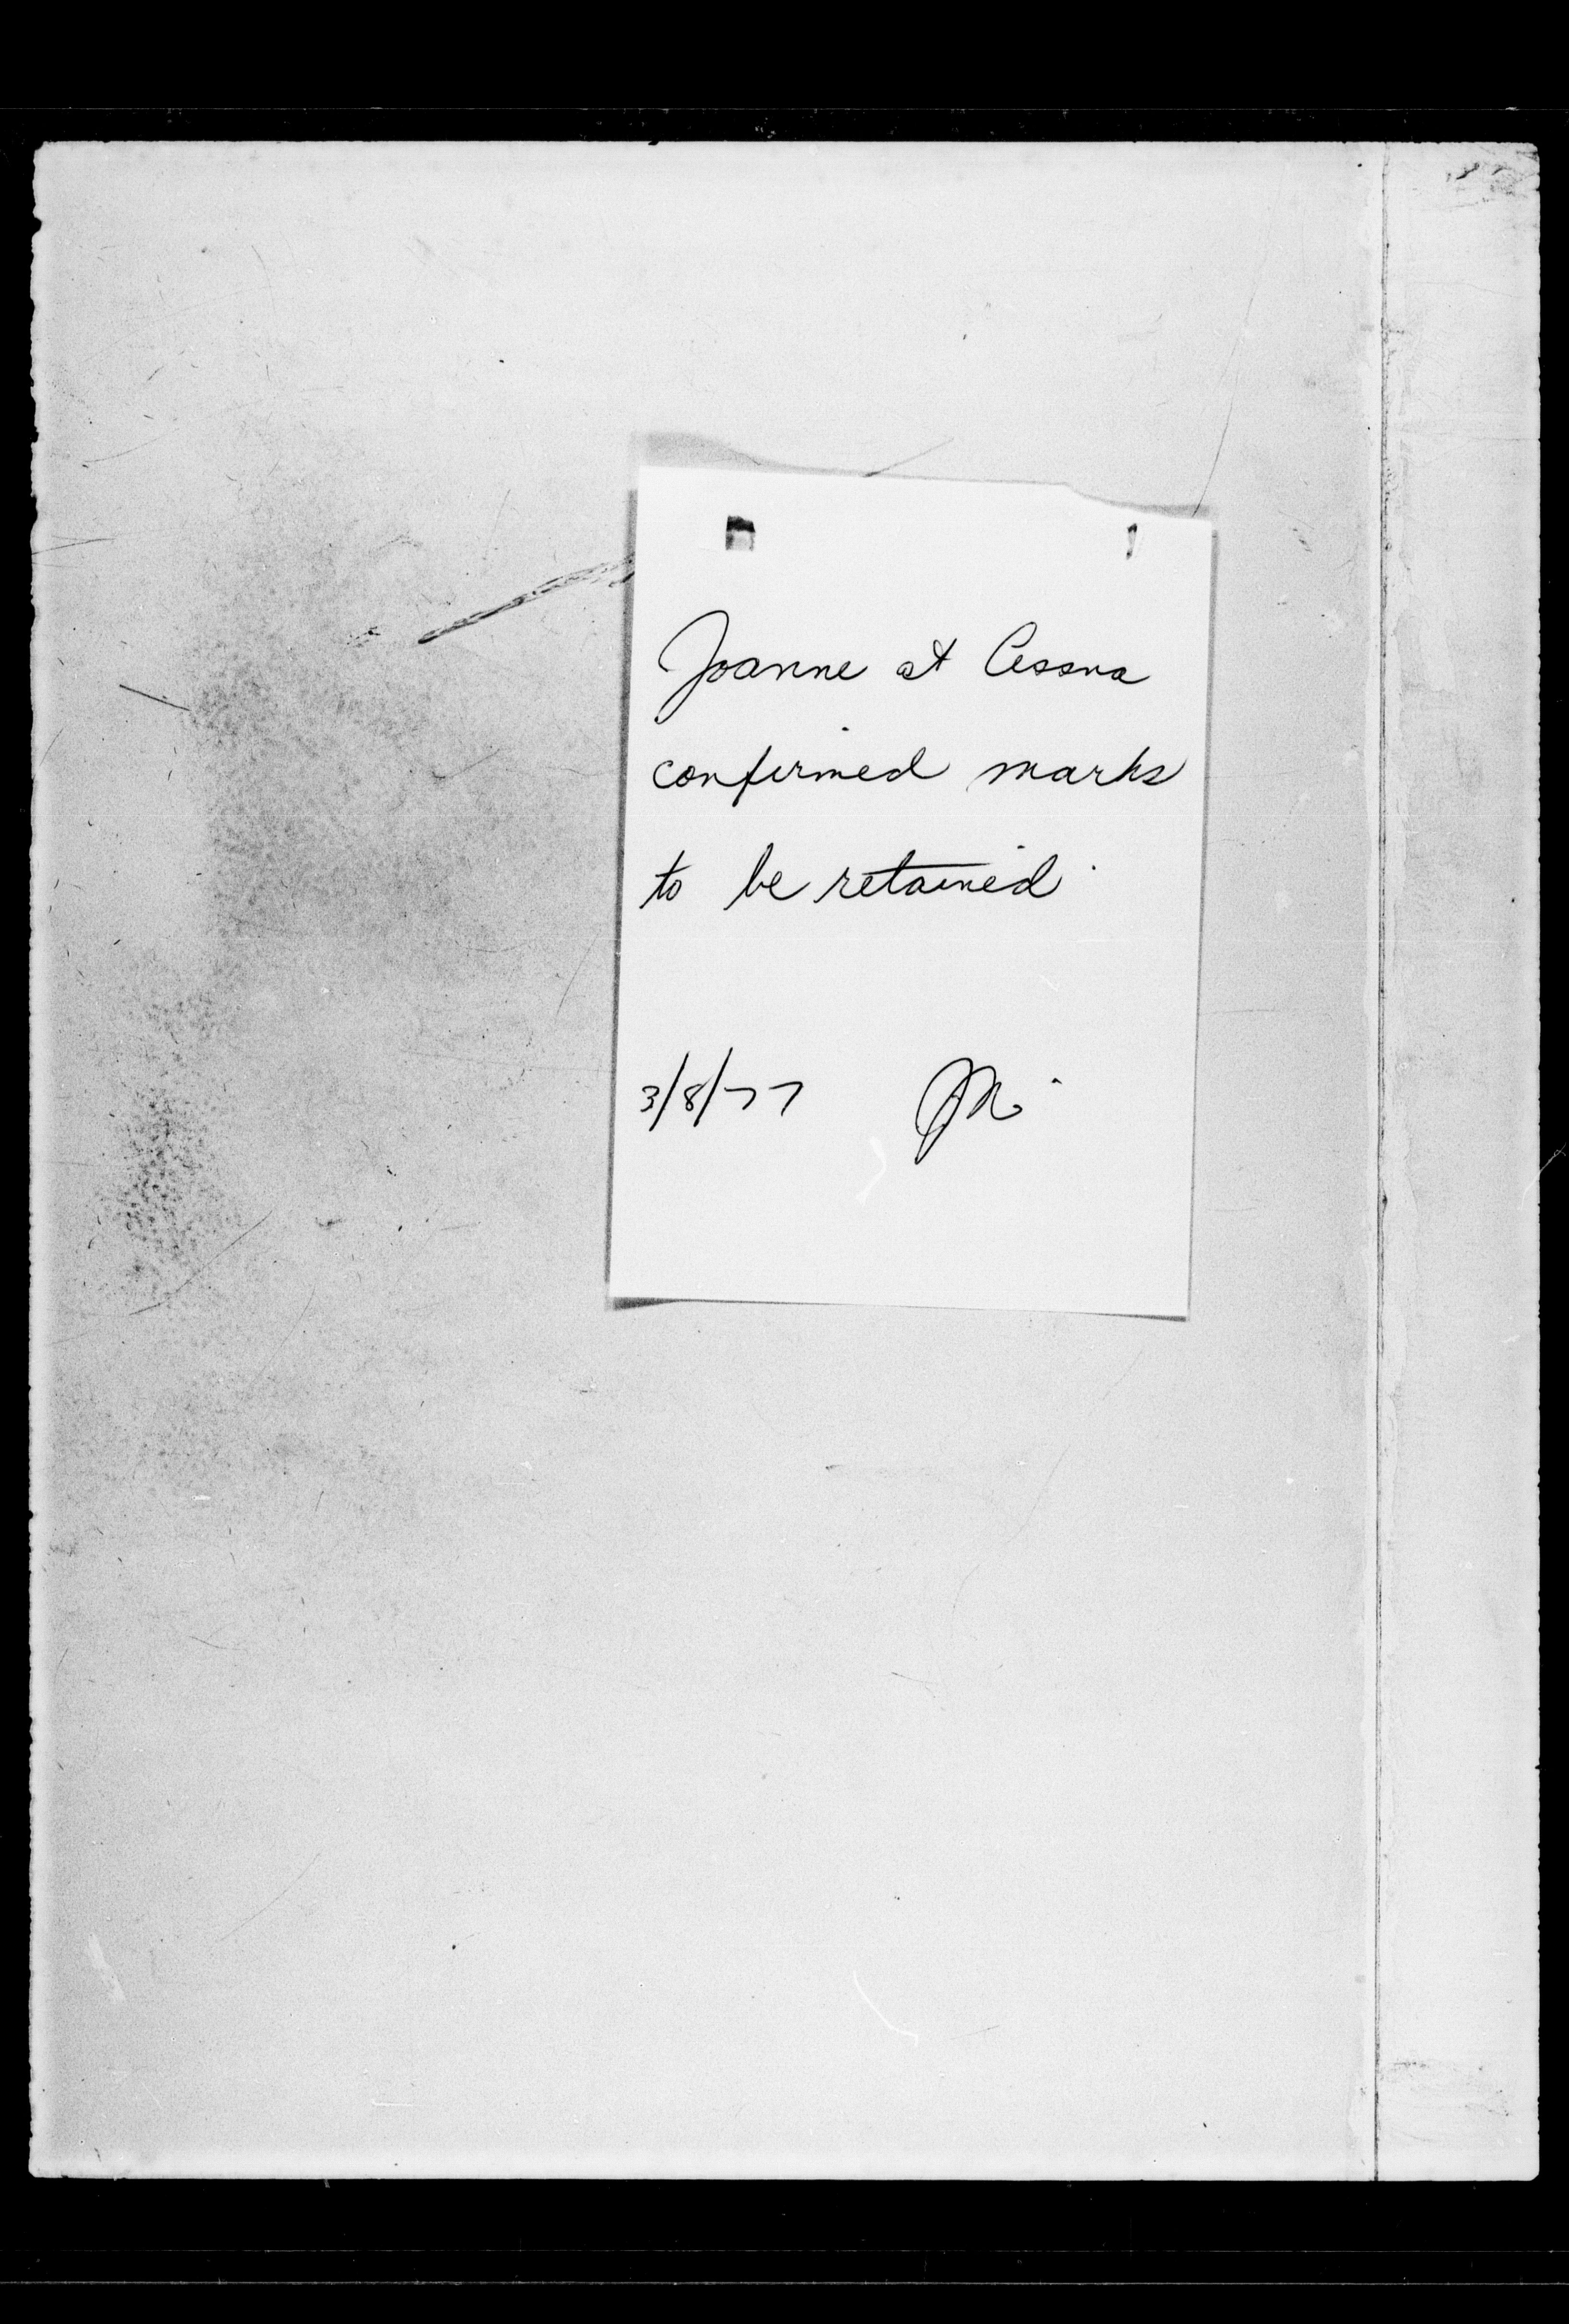 Joanne at Cessna
confirmed marks
to be retained
3/8/77